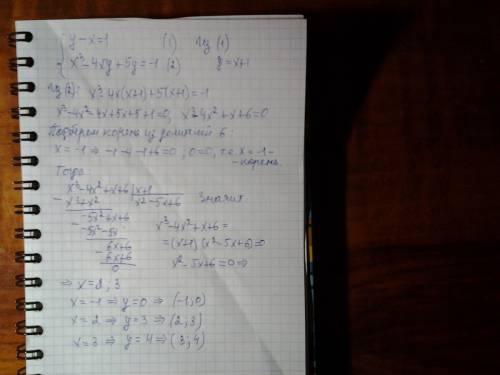 { y-x=1 (1) Из (1)
x³-4xy+5y=-1 (2) y=x+1
Из (2): x³-4x(x+1)+5(x+1)=-1
x³-4x²-4x+5x+5+1=0, x³-4x²+x+6=0
Подберем корень из делителей 6:
x=-1 ⇒ -1-4-1+6=0; 0=0, т.е. x=-1 -
- корень.
Тогда
- x³-4x²+x+6 | x+1
x³+x² x²-5x+6 Значит
- -5x²+x+6 x³-4x²+x+6=
-5x²-5x =(x+1)(x²-5x+6)=0
- 6x+6 x²-5x+6=0 ⇒
6x+6
0
⇒ x=2; 3
x=-1 ⇒ y=0 ⇒ (-1;0)
x=2 ⇒ y=3 ⇒ (2;3)
x=3 ⇒ y=4 ⇒ (3;4)